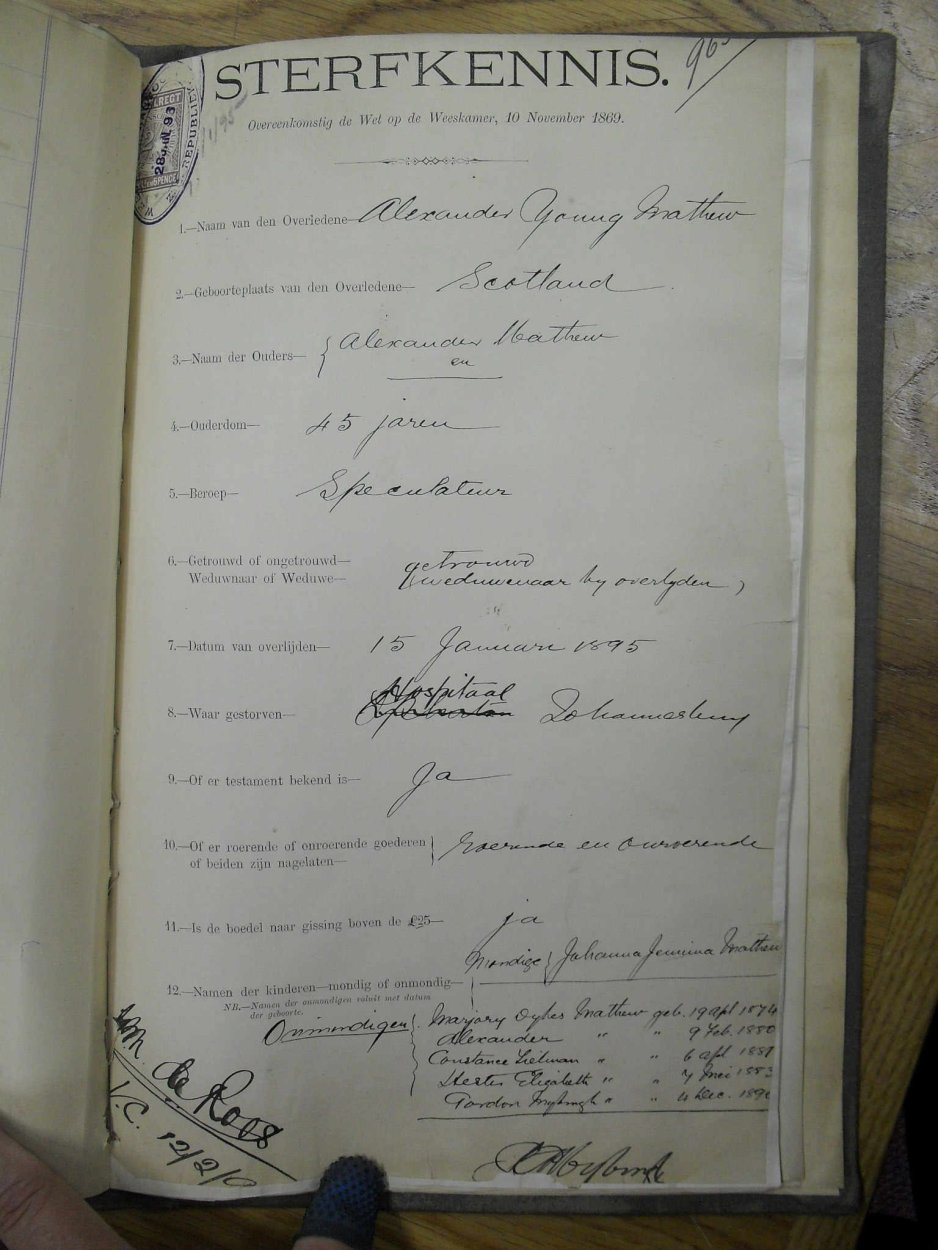 STERFKENNIS.
96
Overeenkomstig de Wet op de Weeskamer, 10 November 1869.
28 JAN. 93
1.—Naam van den Overledene— Alexander Young Mathew
2.—Geboorteplaats van den Overledene— Scotland
3.—Naam der Ouders— { Alexander Mathew
en
4.—Ouderdom— 45 jaren
5.—Beroep— Speculateur
6.—Getrouwd of ongetrouwd— getrouwd
Weduwnaar of Weduwe— (weduwenaar by overlyden)
7.—Datum van overlijden— 15 Januari 1895
Hospitaal
8.—Waar gestorven— Johannesburg
9.—Of er testament bekend is— Ja
10.—Of er roerende of onroerende goederen } roerende en onroerende
of beiden zijn nagelaten—
11.—Is de boedel naar gissing boven de £25— ja
Mondige { Johanna Jemima Mathew
12.—Namen der kinderen—mondig of onmondig—
NB.—Namen der onmondigen voluit met datum
der geboorte.
Onmondigen { Marjory Dykes Mathew geb. 19 apl 1874
Alexander " " 9 Feb. 1880
Constance " " 6 apl 1881
Hester Elizabeth " " 7 Mei 1883
Gordon " " 4 Dec. 1890
de Roos
V.C. 12/2/